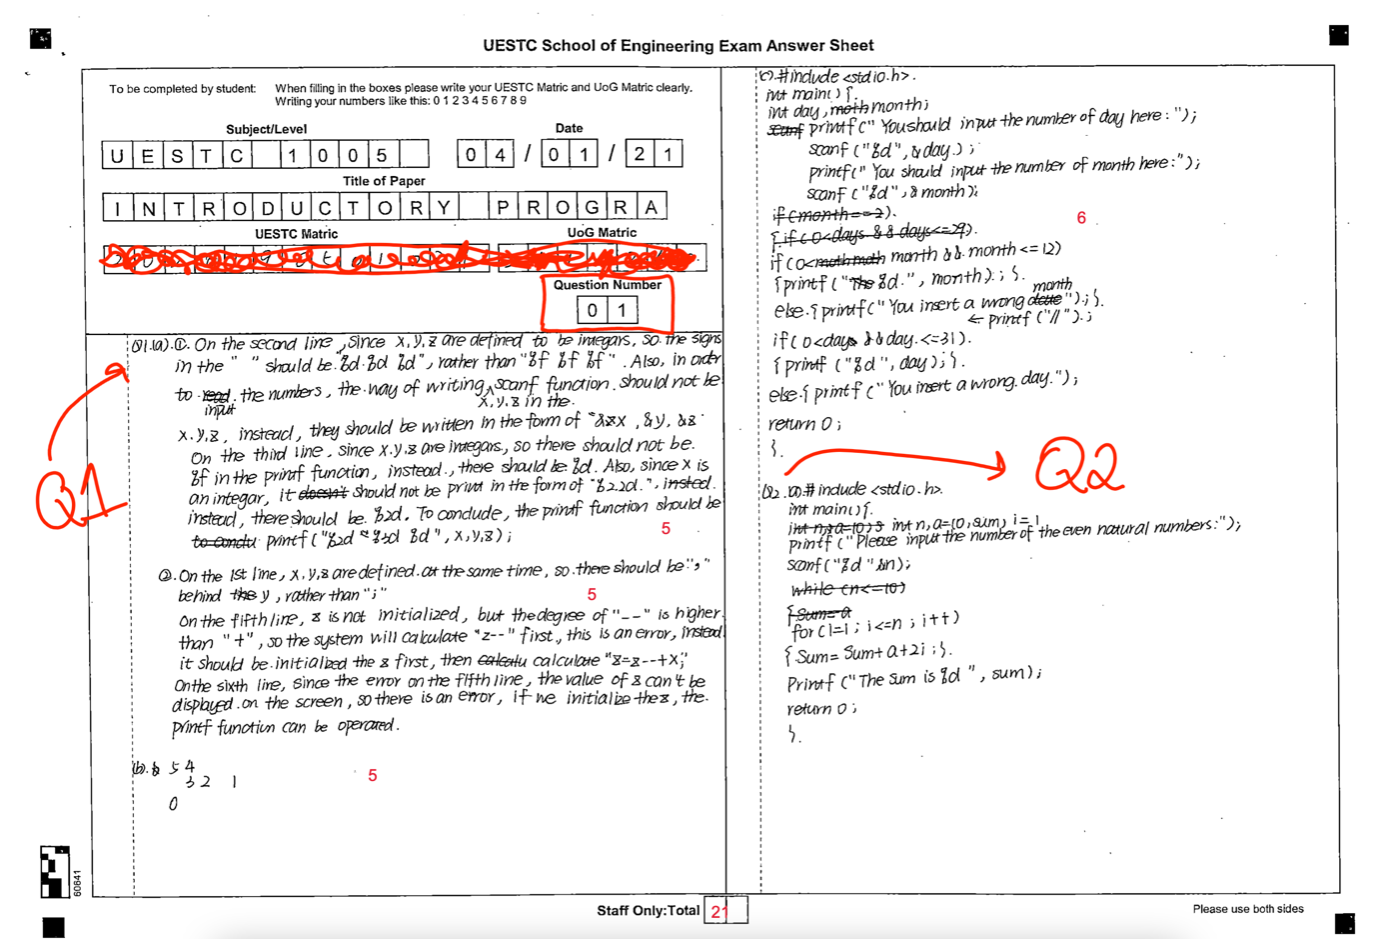 UESTC School of Engineering Exam Answer Sheet
To be completed by student: When filling in the boxes please write your UESTC Matric and UoG Matric clearly.
Writing your numbers like this: 0 1 2 3 4 5 6 7 8 9
Subject/Level Date
UESTC 1005 04/01/21
Title of Paper
INTRODUCTORY PROGRA
UESTC Matric UoG Matric
Question Number
01
Q1
Q1.(a).①. On the second line, since x,y,z are defined to be integars, so the signs
in the " " should be "%d %d %d", rather than "%f %f %f". Also, in order
to read the numbers, the way of writing scanf function should not be
input x,y,z in the
x,y,z, instead, they should be written in the form of "&x, &y, &z"
On the third line, since x,y,z are integars, so there should not be
%f in the printf function, instead, there should be %d. Also, since x is
an integar, it doesn't should not be print in the form of "%2.2d.", insted.
instead, there should be %2d. To conclude, the printf function should be
to conclu printf("%2d %3d %d", x,y,z);
5
②. On the 1st line, x,y,z are defined at the same time, so there should be ","
behind the y, rather than ";"
5
On the fifth line, z is not initialized, but the degree of "--" is higher
than "+", so the system will calculate "z--" first, this is an error, instead
it should be initialized the z first, then calculate "z=z--+x;"
On the sixth line, since the error on the fifth line, the value of z can't be
displayed on the screen, so there is an error, if we initialize the z, the
printf function can be operated.
(b). 5 4
3 2 1
0
5
c). #include <stdio.h>.
int main(){.
int day, moth month;
scanf printf(" You should input the number of day here: ");
scanf ("%d", &day);
printf(" You should input the number of month here:");
scanf ("%d", &month);
if (month==2).
6
{if(0<days && days<=29).
if (0< month && month <=12)
{printf("The %d.", month); }.
month
else{printf("You insert a wrong date");}.
← printf("//");
if(0<days && day<=31).
{printf("%d", day);}.
else{printf("You insert a wrong day.");
return 0;
}.
Q2
Q2.a).#include <stdio.h>.
int main(){.
int n, a=10, sum, i=1
printf("Please input the number of the even natural numbers:");
scanf("%d" &n);
while (n<=10)
{Sum=a
for(i=1; i<=n; i++)
{Sum=Sum+a+2i;}.
Printf("The sum is %d ", sum);
return 0;
}.
60841
Staff Only:Total 21
Please use both sides